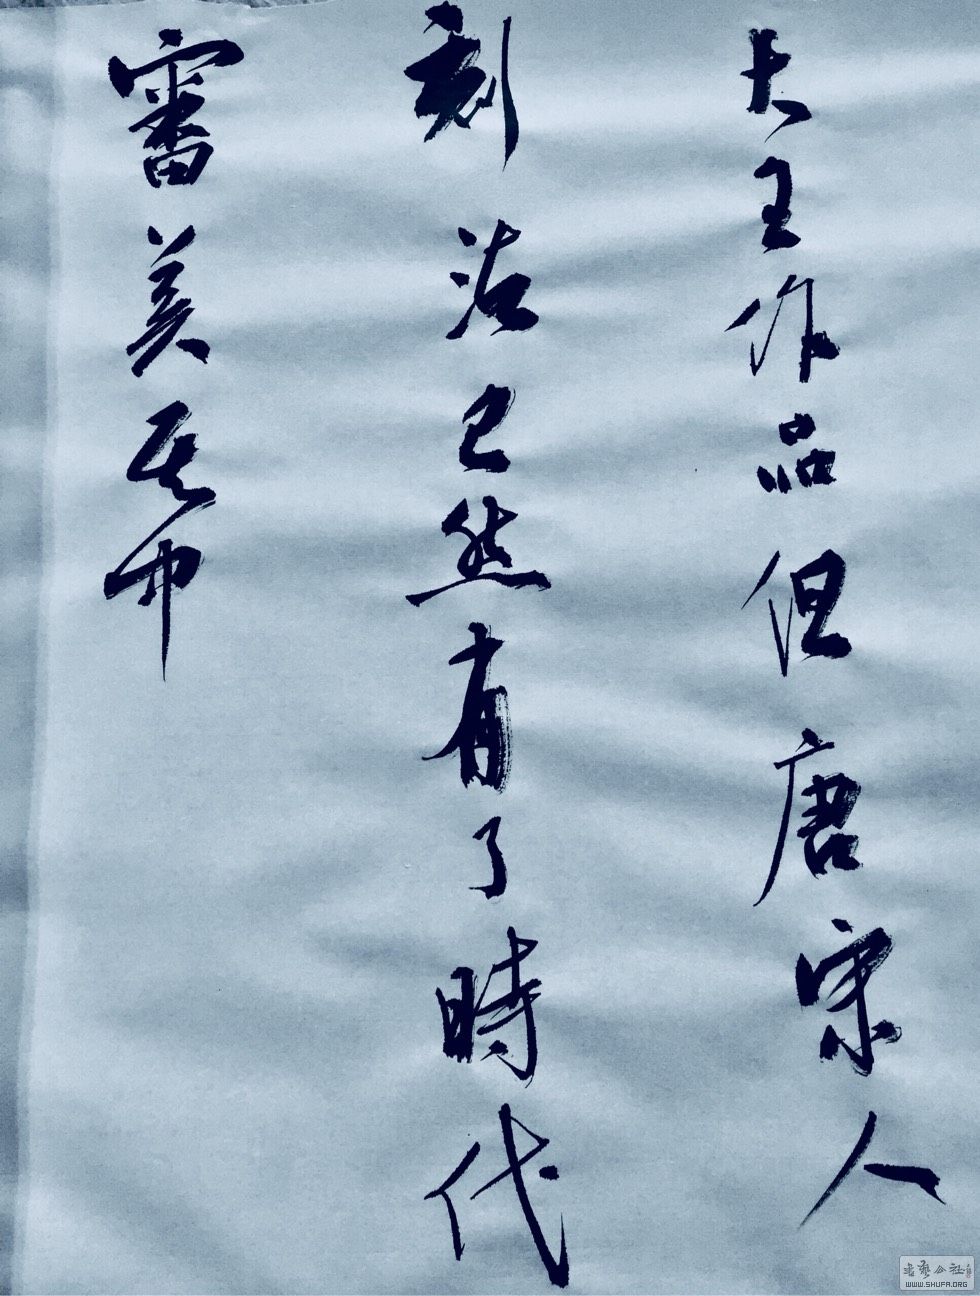 大王作品但唐宋人
刻活已然有了時代
審美其中
WWW.SHUFA.ORG